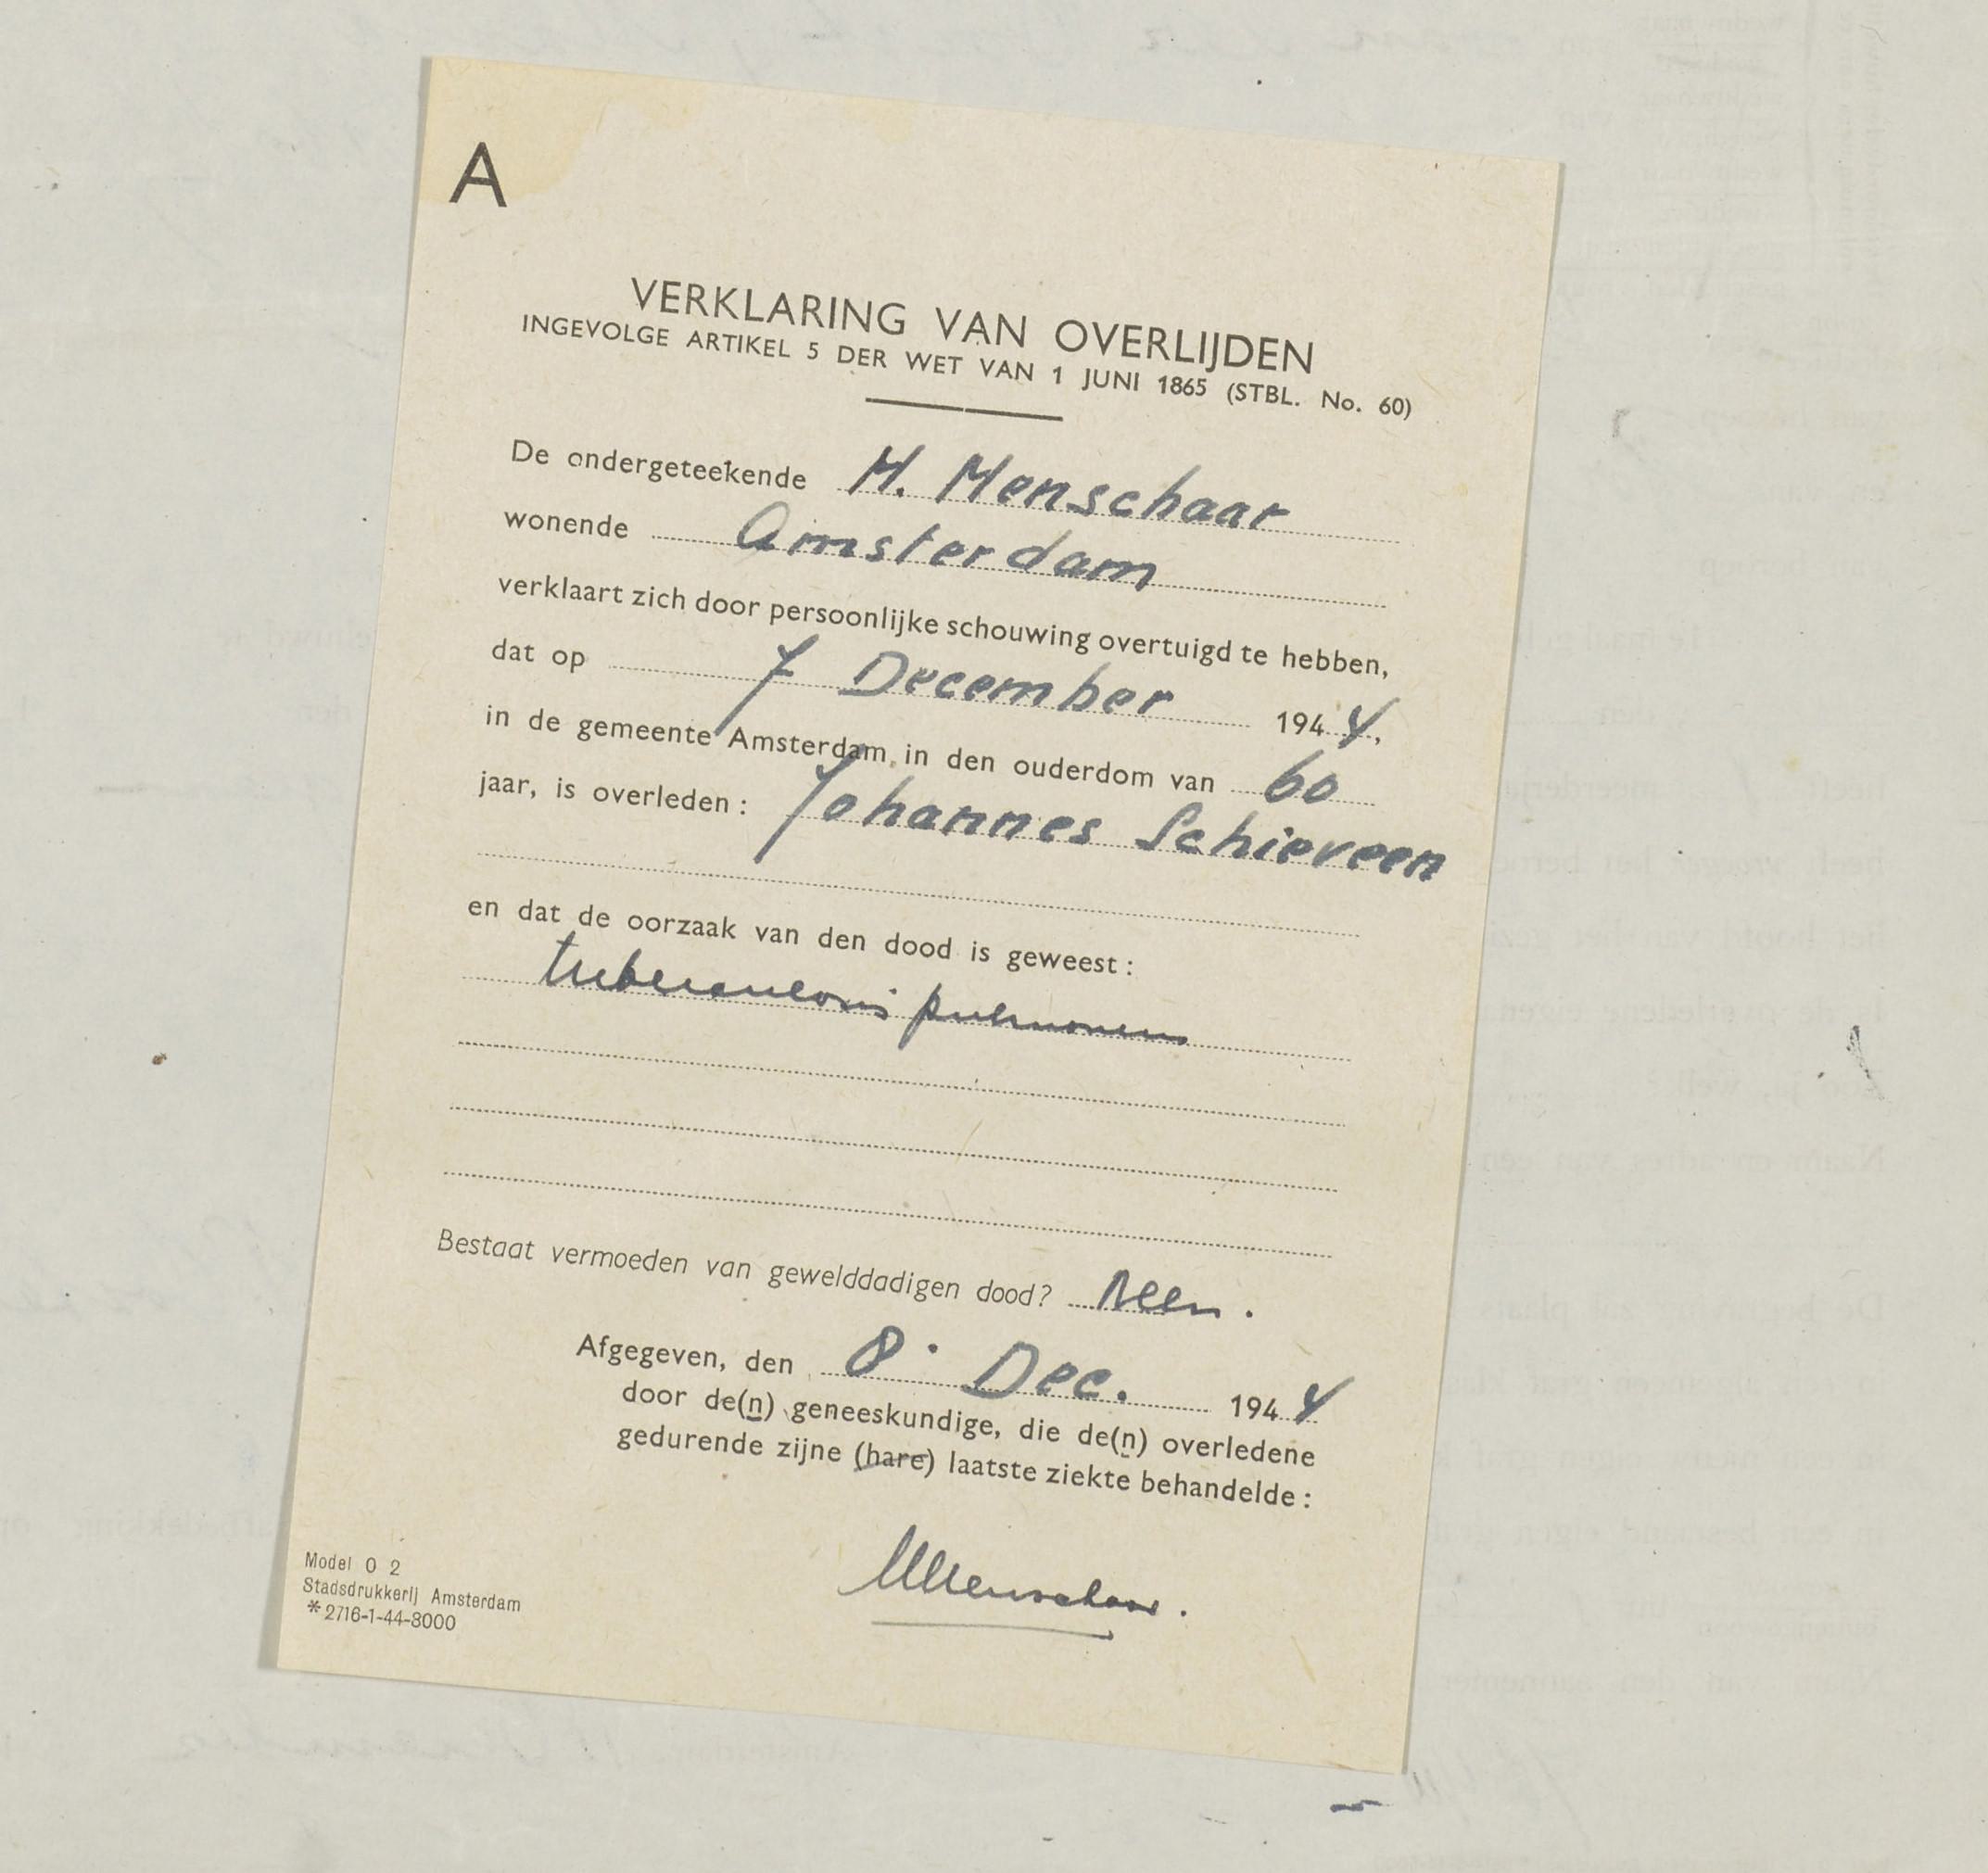 A
VERKLARING VAN OVERLIJDEN
INGEVOLGE ARTIKEL 5 DER WET VAN 1 JUNI 1865 (STBL. No. 60)
De ondergeteekende H. Menschaar
wonende Amsterdam
verklaart zich door persoonlijke schouwing overtuigd te hebben,
dat op 7 December 1944,
in de gemeente Amsterdam, in den ouderdom van 60
jaar, is overleden: Johannes Schieveen
en dat de oorzaak van den dood is geweest:
tuberculosis pulmonum
Bestaat vermoeden van gewelddadigen dood? Neen.
Afgegeven, den 8 Dec. 1944
door de(n) geneeskundige, die de(n) overledene
gedurende zijne (hare) laatste ziekte behandelde:
HMenschaar.
Model O 2
Stadsdrukkerij Amsterdam
*2716-1-44-3000